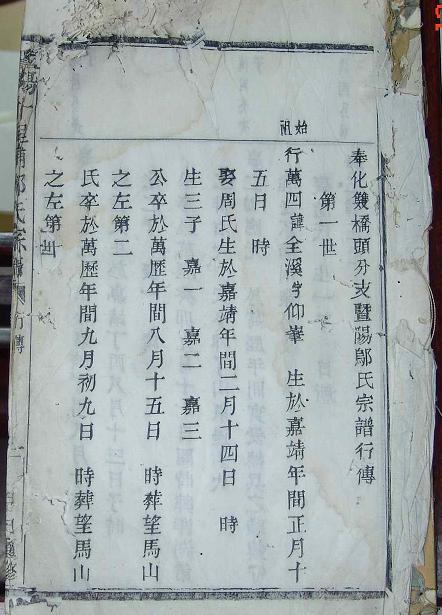 奉化雙橋頭分支暨陽鄔氏宗譜行傳
第一世
始祖
行萬四諱全溪字仰峯 生於嘉靖年間正月十
五日 時
娶周氏生於嘉靖年間二月十四日 時
生三子 嘉一 嘉二 嘉三
公卒於萬歷年間八月十五日 時葬望馬山
之左第二
氏卒於萬歷年間九月初九日 時葬望馬山
之左第